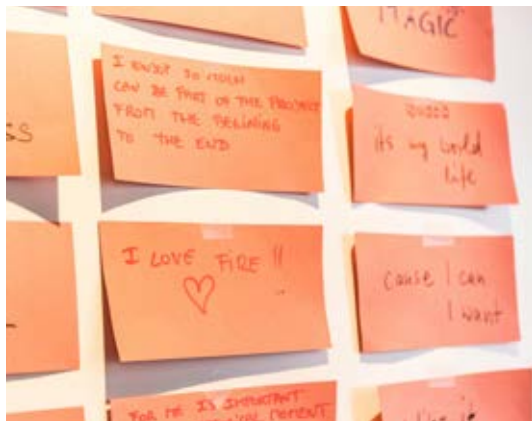 MAGIC
I ENJOY SO MUCH
CAN BE PART OF THE PROJECT
FROM THE BEGINING
TO THE END
SS
its my world
life
I LOVE FIRE !!
cause I can
I want
FOR ME IS IMPORTANT
MOMENT